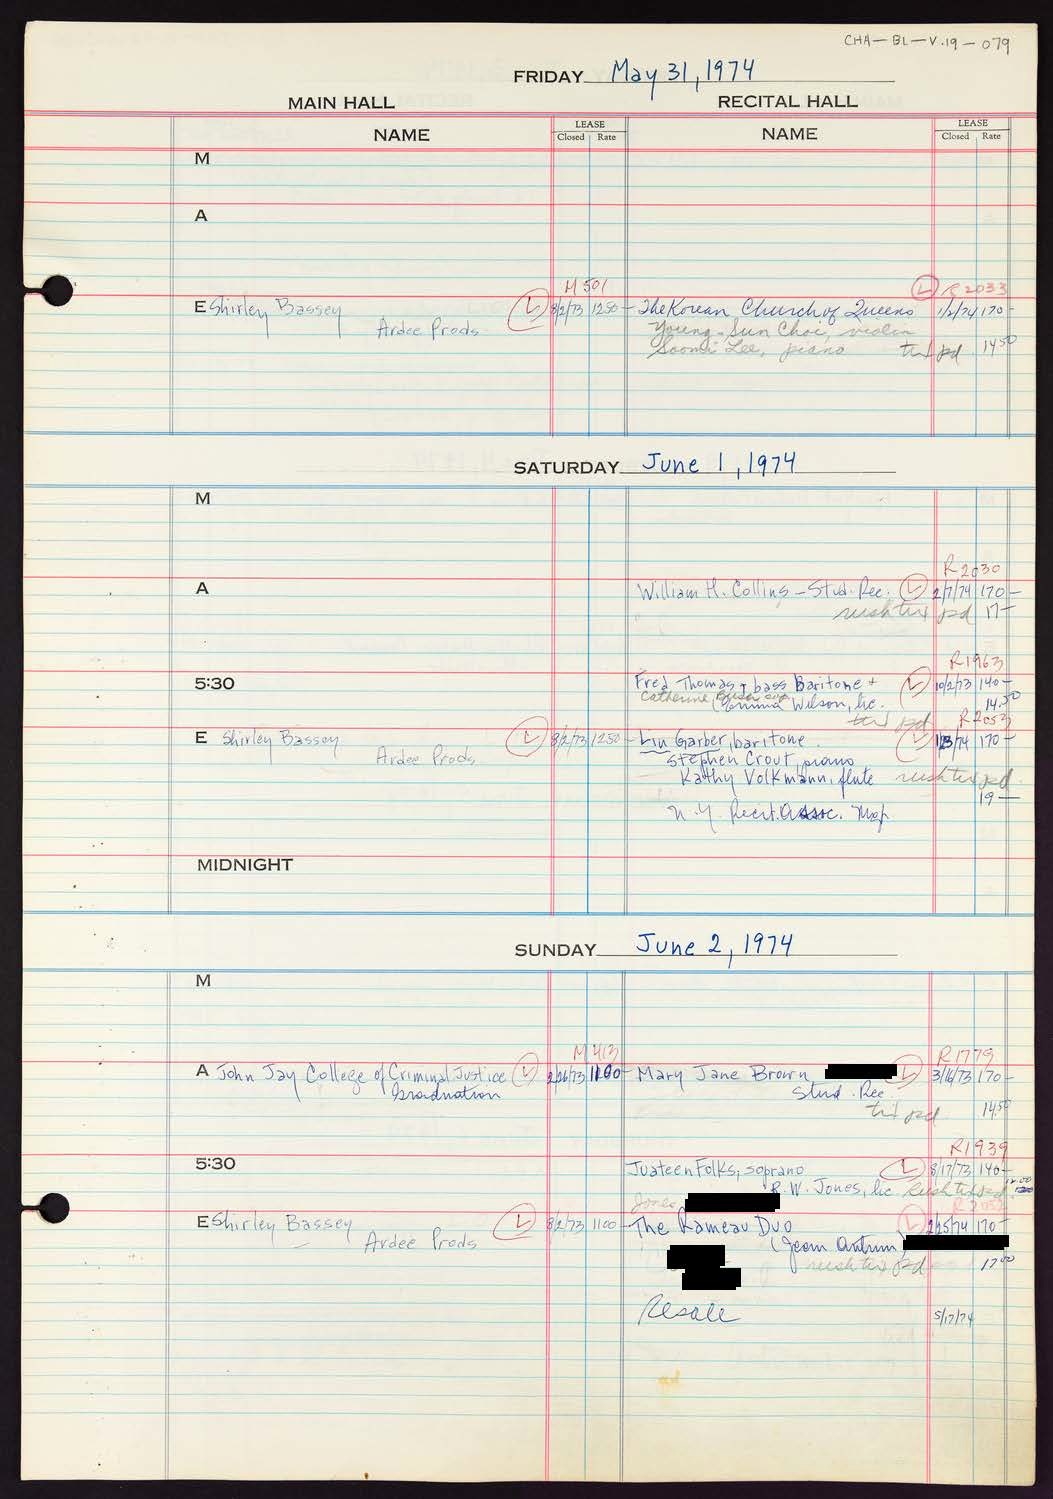 CHA-BL-V.19-079
FRIDAY May 31, 1974
MAIN HALL RECITAL HALL
NAME LEASE Closed Rate NAME LEASE Closed Rate
M
A
M 501 L R 2033
E Shirley Bassey L 8/2/73 1250- The Korean Church of Queens 1/2/74 170-
Ardee Prods Young-Sun Choi, violin
Soomi Lee, piano pd 14.50
SATURDAY June 1, 1974
M
R2030
A William H. Collins - Stud. Rec. L 2/7/74 170-
rush tix pd 17-
R1963
5:30 Fred Thomas, bass Baritone + L 10/2/73 140-
Catherine
Wilson, lic. 14.50
tix pd R2052
E Shirley Bassey L 8/2/73 1250- Lin Garber, baritone L 170-
Ardee Prods Stephen Crout, piano
Kathy Volkmann, flute rush tix pd
19-
N.Y. Recit. Assoc. Mgr.
MIDNIGHT
SUNDAY June 2, 1974
M
M 413 R1779
A John Jay College of Criminal Justice L 2/26/73 1100- Mary Jane Brown L 3/16/73 170-
Graduation Stud. Rec.
tix pd 14.50
R1939
5:30 Juateen Folks, soprano L 8/17/73 140-
R.W. Jones, lic. Rush tix pd
Jones
E Shirley Bassey L 8/2/73 1100- The Rameau Duo L 2/25/74 170-
Ardee Prods (Jean Antrim)
rush tix pd 17.00
Resale 5/17/74